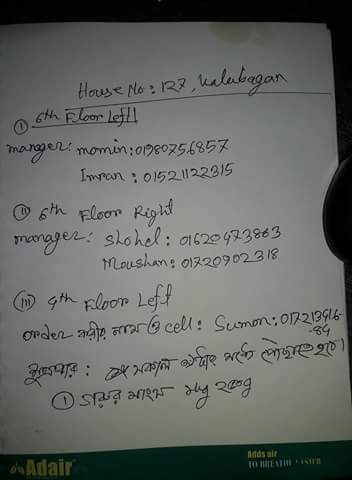 House No: 127, Kalabagan
(I) 6th Floor Left
manger: momin: 01980756857
Imran: 01521122315
(II) 6th Floor Right
manager: Shohel: 01620473863
Moushan: 01720902318
(III) 4th Floor Left
Order নাম ও cell: Sumon: 017213916-
-84
সকাল মধ্যে পৌছাতে হবে।
(1) গরুর মাংস
Adair
Adds air
TO BREATHE EASIER